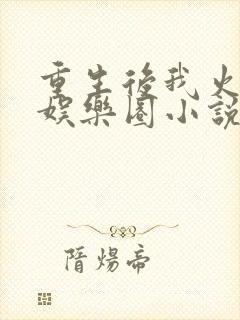 重生後我火
娛樂圈小說
隋煬帝